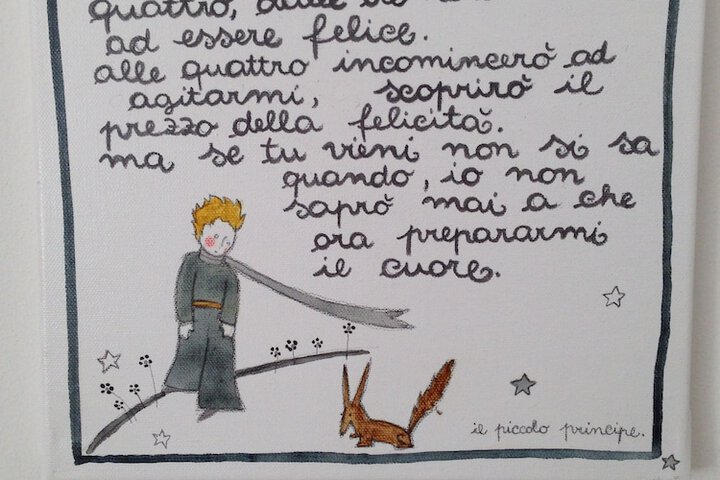 quattro, dalle tre
ad essere felice.
alle quattro incomincerò ad
agitarmi, scoprirò il
prezzo della felicità.
ma se tu vieni non si sa
quando, io non
saprò mai a che
ora prepararmi
il cuore.
il piccolo principe.